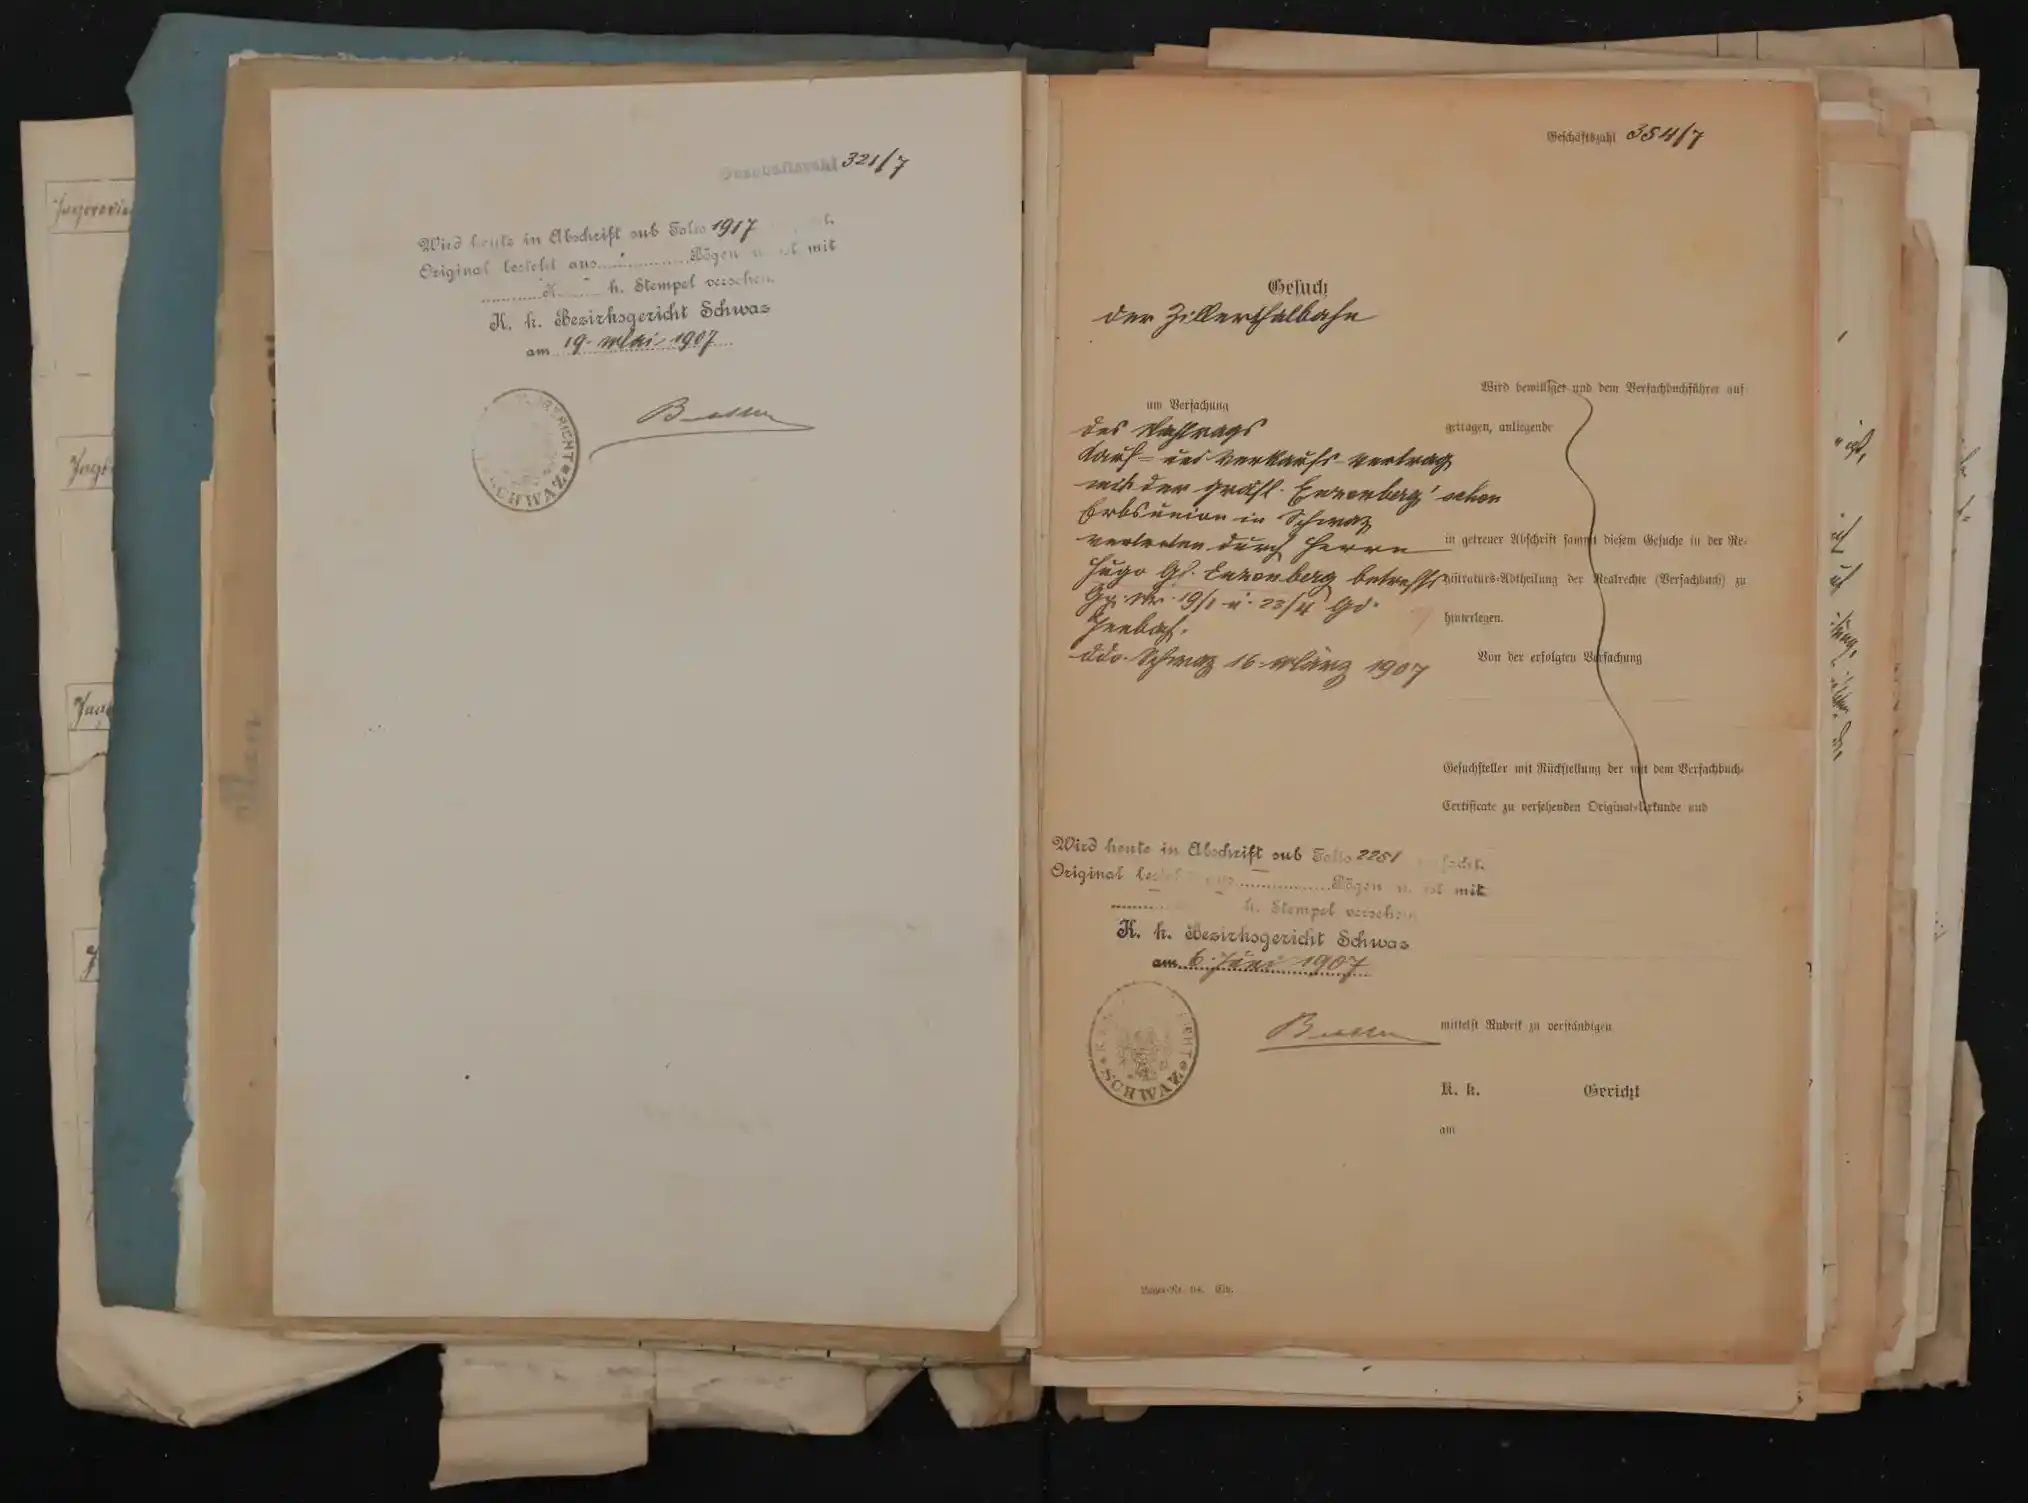 Geschäftszahl 321/7
Wird heute in Abschrift sub Folio 1917
Original besteht aus Bögen u. ist mit
K h. Stempel versehen.
K. k. Bezirksgericht Schwaz
am 19. Mai 1907
SCHWAZ
Geschäftszahl 354/7
Gesuch
der Zillerthalbahn
um Verfachung
des
Kauf- und Verkaufs-Vertrag
mit der gräfl. Enzenberg'schen
Erbsunion in Schwaz
vertreten durch Herrn
Hugo Gf. Enzenberg betreffs
Gp. Nr. 19/1 u. 23/4 Gd.
Jenbach.
ddo. Schwaz 16. März 1907
Wird bewilliget und dem Verfachbuchführer auf-
getragen, anliegende
in getreuer Abschrift sammt diesem Gesuche in der Re-
gistraturs-Abtheilung der Realrechte (Verfachbuch) zu
hinterlegen.
Von der erfolgten Verfachung
Gesuchsteller mit Rückstellung der mit dem Verfachbuch-
Certificate zu versehenden Original-Urkunde und
Wird heute in Abschrift sub Folio 2251 verfacht.
Original besteht aus Bögen u. ist mit
h. Stempel versehen
K. k. Bezirksgericht Schwaz
am 6. Juni 1907
SCHWAZ
mittelst Rubrik zu verständigen
K. k. Gericht
am